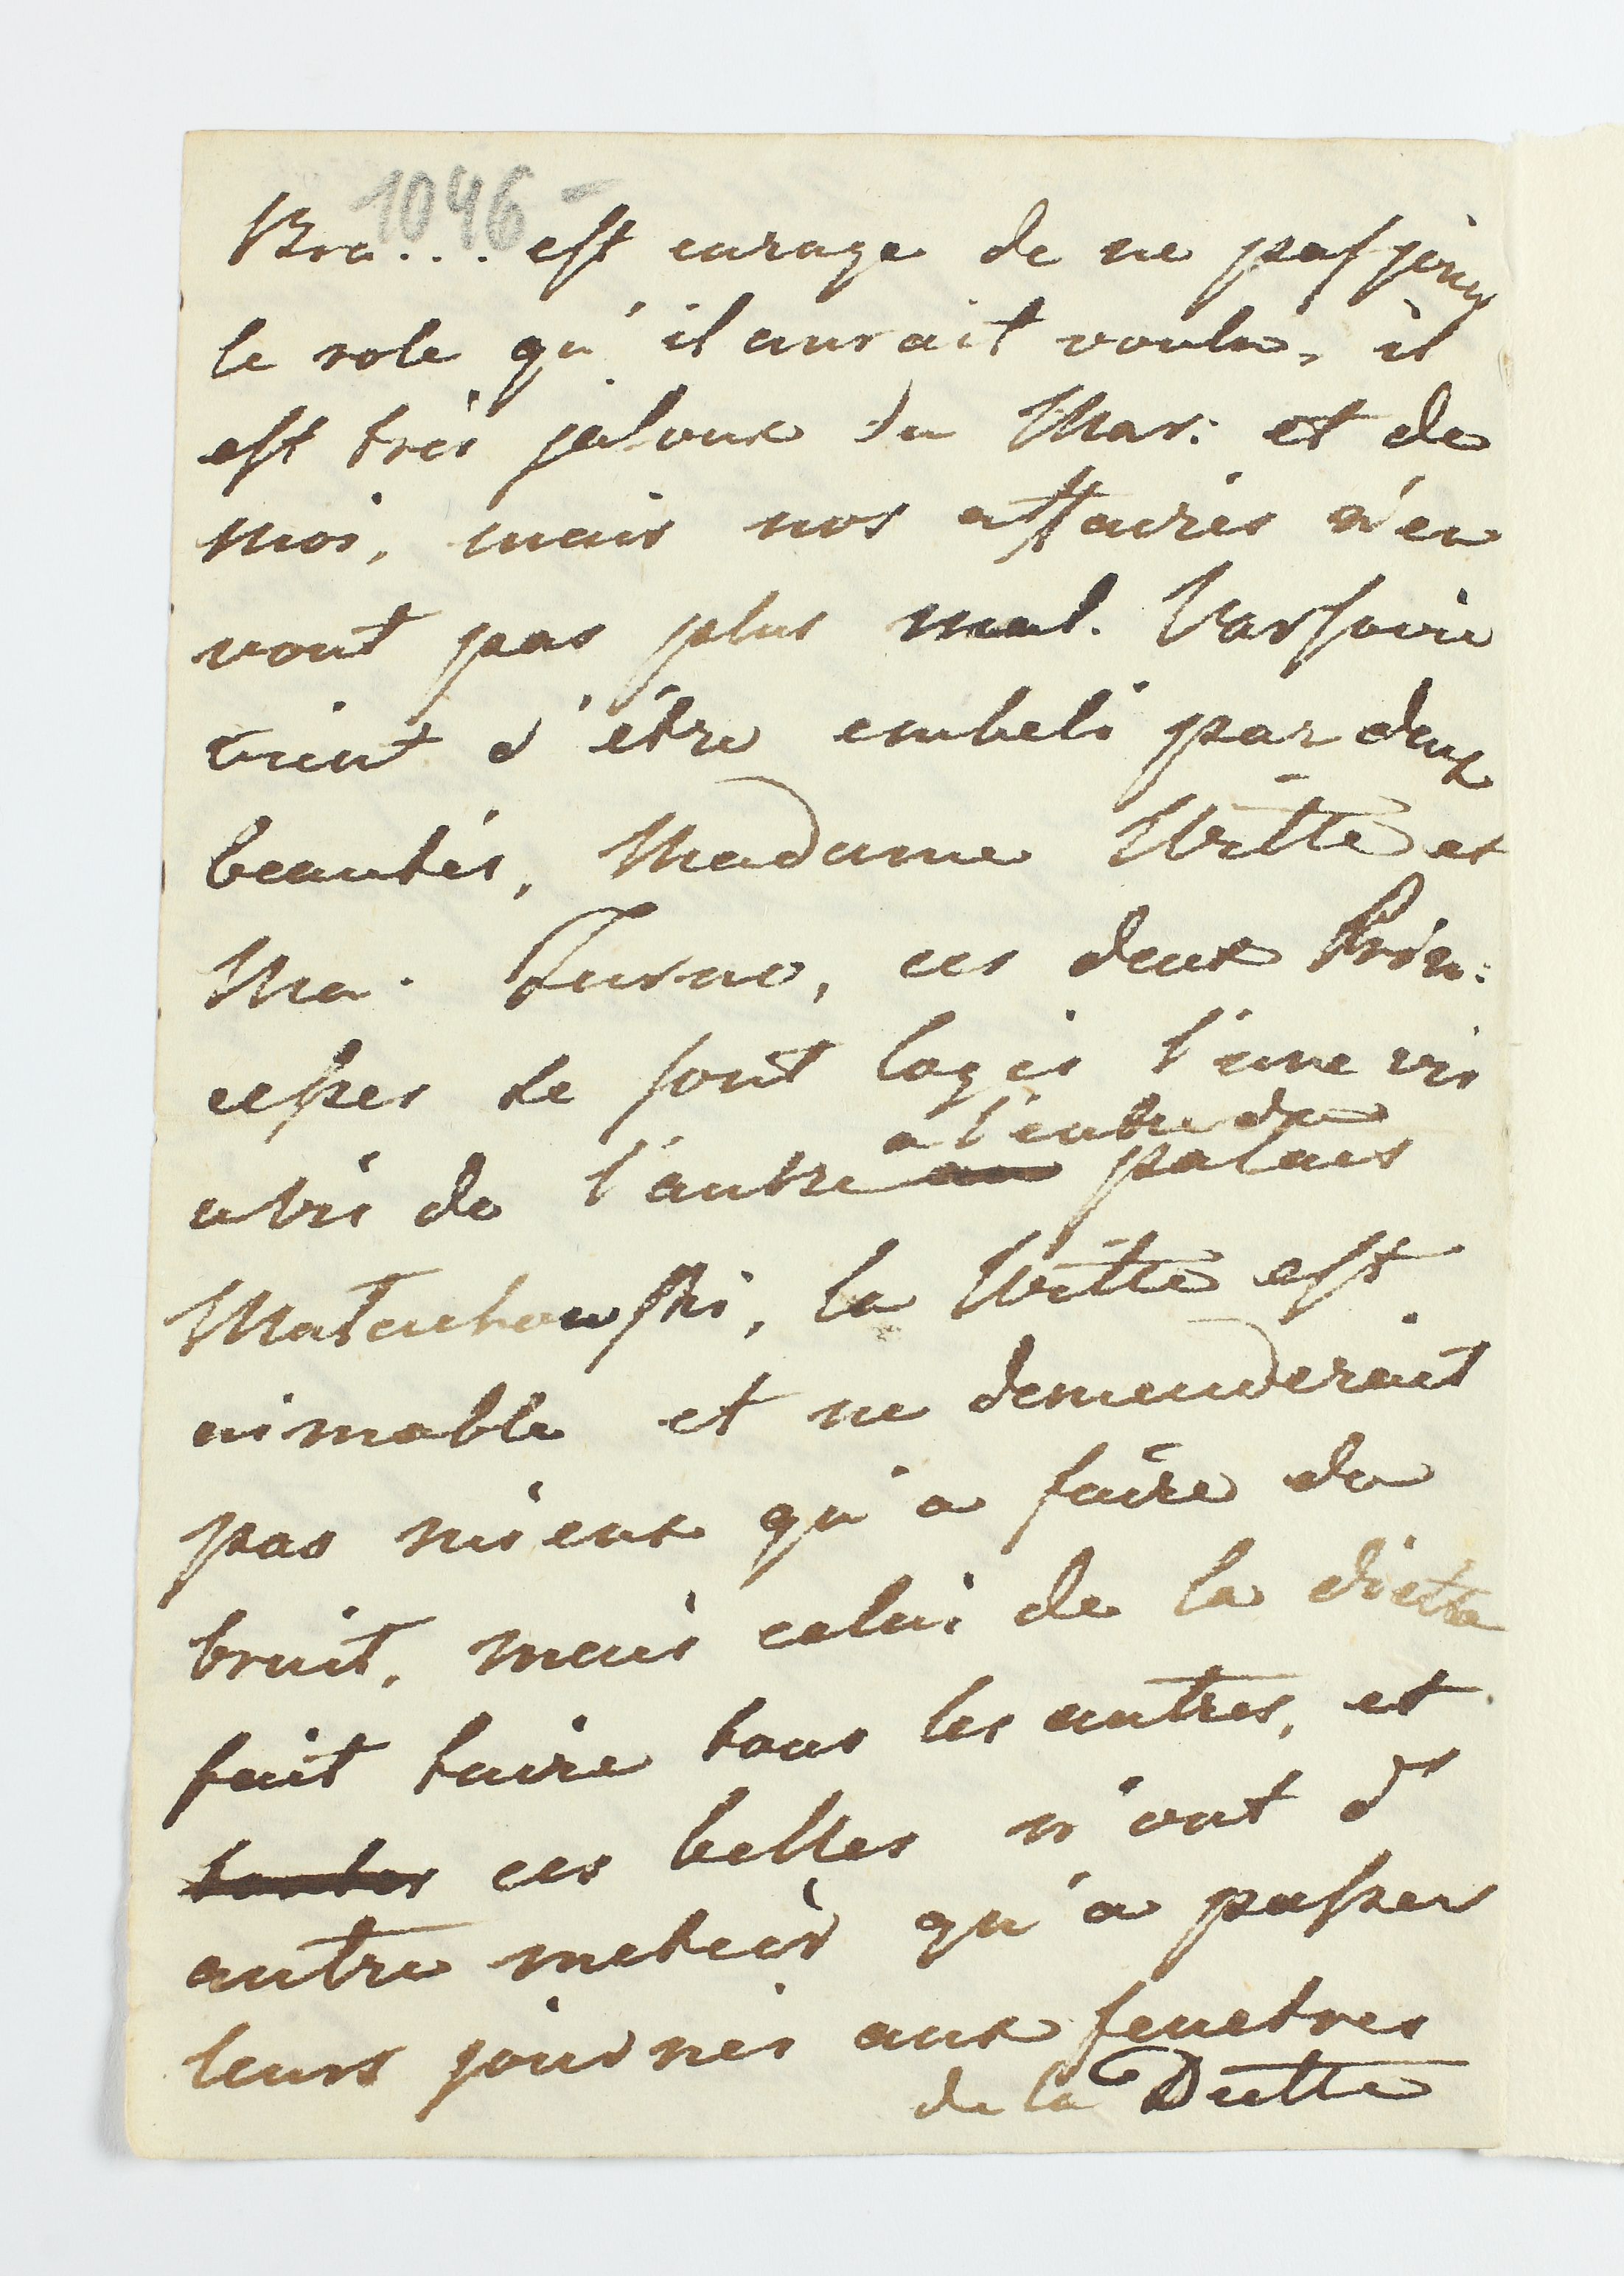 1046 -
Bra... est enragé de ne pas jouer
le role qu'il aurait voulu, il
est très jaloux du Mar: et de
moi, mais nos affaires n'en
vont pas plus mal. Varsovie
vient d'être embeli par deux
beautés, Madame Witte et
Ma. Turno, ces deux Prin:
cesses se sont logés l'une vis
a vis de l'autre au palais
a l'entre du
Malachowski, la Witte est
aimable et ne demanderait
pas mieux qu'a faire du
bruit, mais celui de la diette
fait taire tous les autres, et
toutes ces belles n'ont d'
autre metier qu'a passer
leurs journés aux fenetres
de la Diette